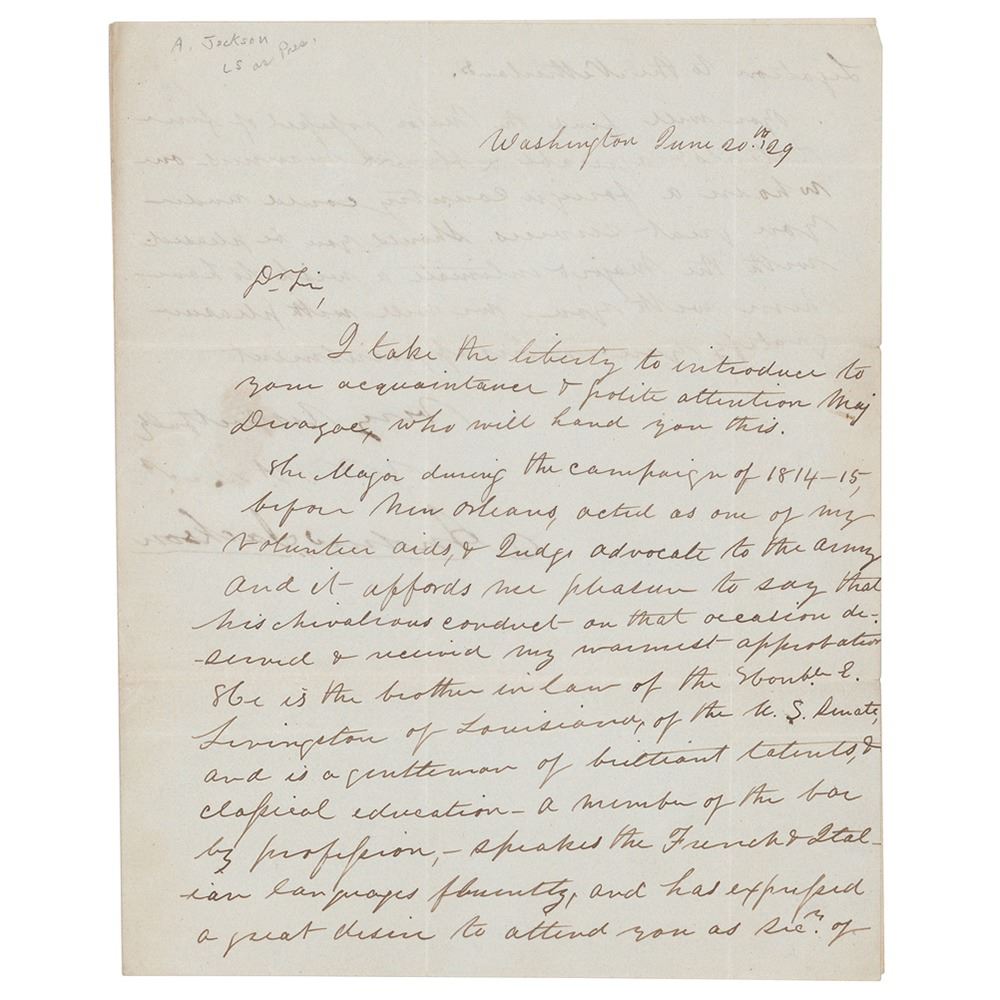 A. Jackson
LS as Pres.
Washington June 20.th 1829
Dr Sir,
I take the liberty to introduce to
your acquaintance & polite attention Maj
Davazac, who will hand you this.
The Major during the campaign of 1814–15,
before New Orleans, acted as one of my
volunteer aids, & Judge advocate to the army
and it affords me pleasure to say that
his chivalrous conduct on that occasion de-
-served & received my warmest approbation
He is the brother in law of the Honble E.
Livingston of Louisiana, of the U. S. Senate,
and is a gentleman of brilliant talents, &
classical education – a member of the bar
by profession, – speakes the French & Ital-
-ian languages fluently, and has expressed
a great desire to attend you as Secy. of